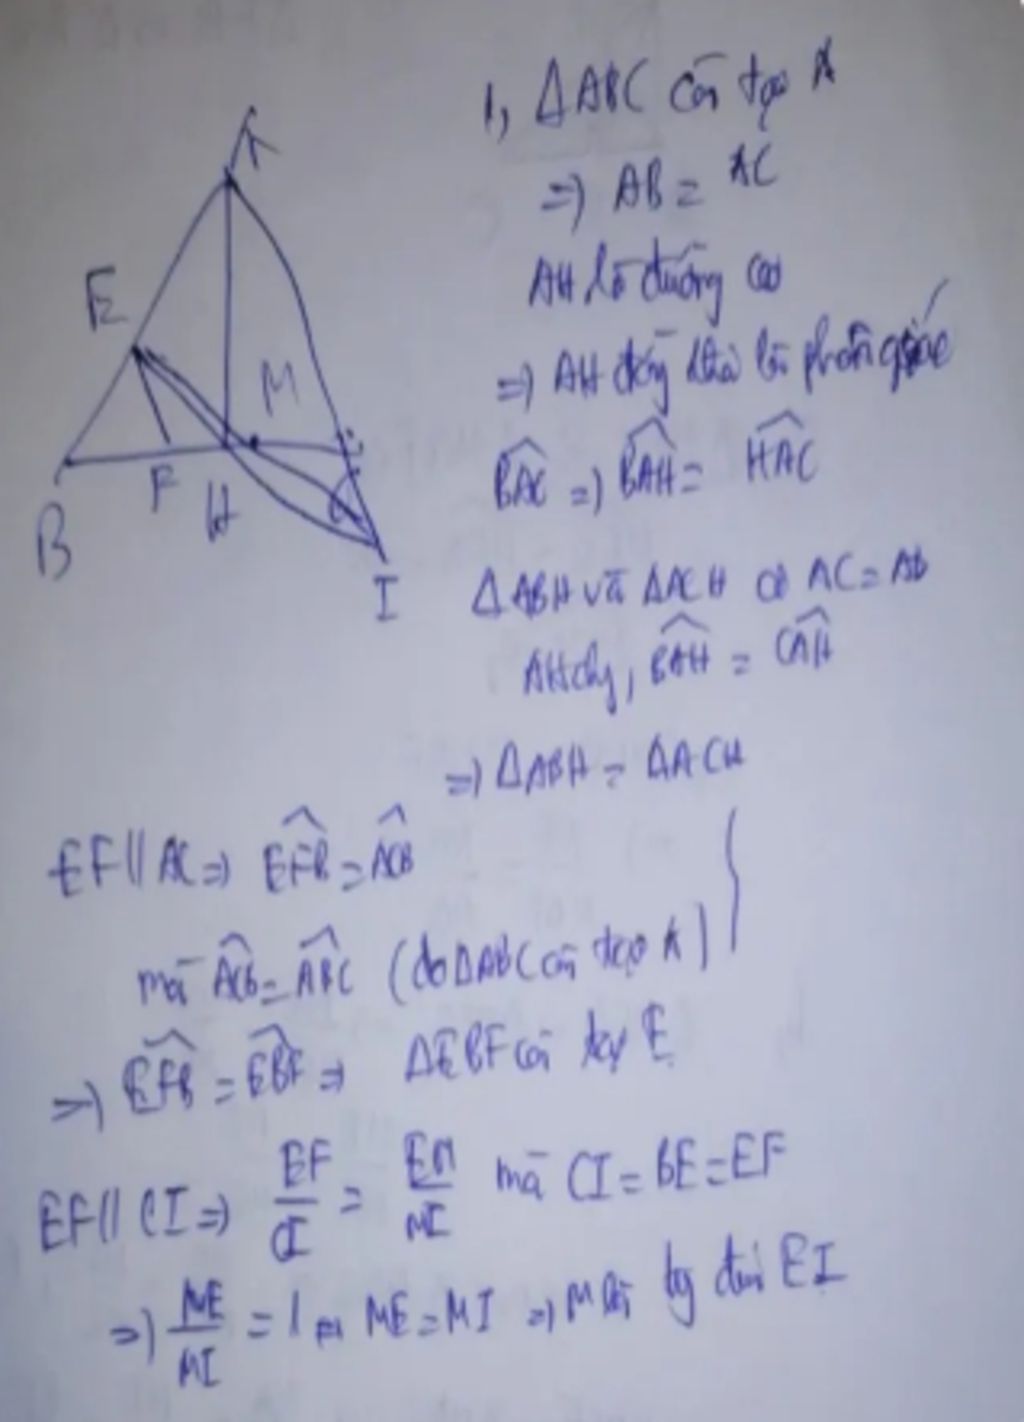 A
E
M
F
H
B
I
1, ΔABC cân tại A
=) AB = AC
AH là đường cao
=) AH đồng thời là phân giác
BAC^ =) BAH^ = HAC^
ΔABH và ΔACH có AC = AB
AH chg, BAH^ = CAH^
=) ΔABH = ΔACH
EF // AC =) EFB^ = ACB^
mà ACB^ = ABC^ (do ΔABC cân tại A)
=) EFB^ = EBF^ =) ΔEBF cân tại E
EF // CI =) EF/CI = EM/MI mà CI = BE = EF
=) ME/MI = 1 ME = MI =) M là tg điểm EI